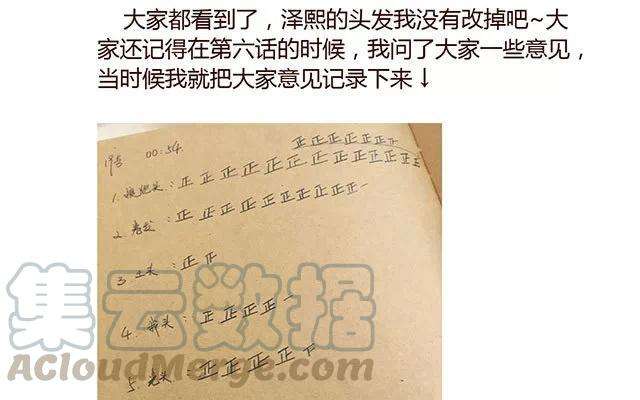 大家都看到了，泽熙的头发我没有改掉吧~大
家还记得在第六话的时候，我问了大家一些意见，
当时候我就把大家意见记录下来↓
00:54
正正正正正正正
1. 正正正正正正正正正正正正
2. 卷发：正正正正正正正正正正一
3. 正
4. 正正正正一
5. 光头：正正正正
集云数据
ACloudMerge.com